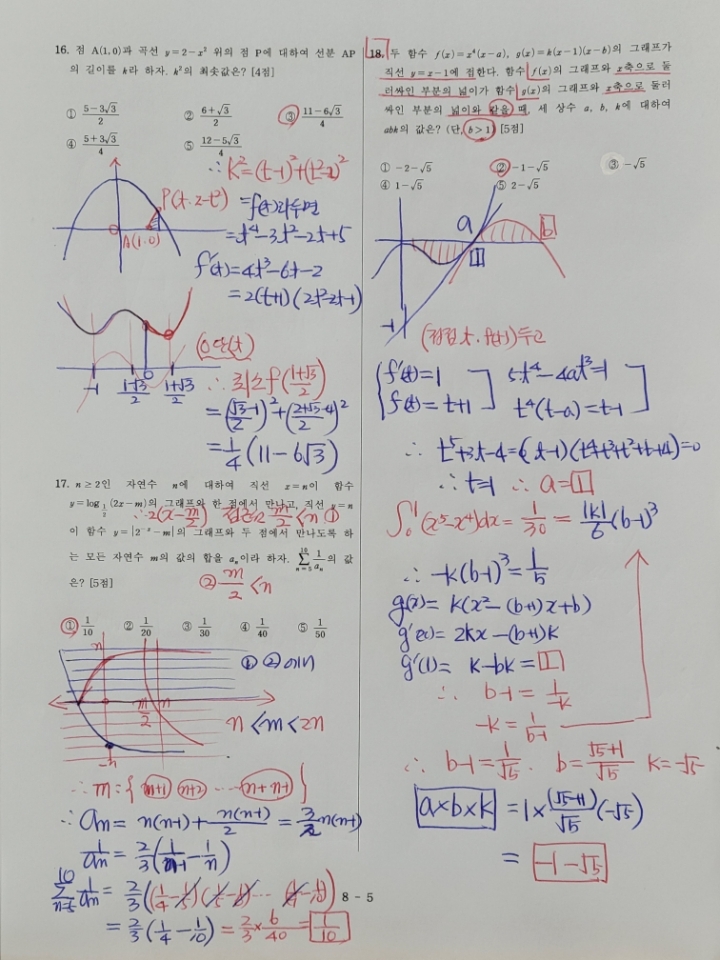 16. 점 A(1, 0)과 곡선 y=2-x² 위의 점 P에 대하여 선분 AP
의 길이를 k라 하자. k²의 최솟값은? [4점]
① (5-3√3)/2 ② (6+√3)/2 ③ (11-6√3)/4
④ (5+3√3)/4 ⑤ (12-5√3)/4
∴ K²=(t-1)²+(t²-2)²
P(t, 2-t²)
A(1,0)
=f(t)라두면
=t⁴-3t²-2t+5
f'(t)=4t³-6t-2
=2(t+1)(2t²-2t-1)
-1 (1-√3)/2 0 (1+√3)/2
(0<t)
∴ 최소f((1+√3)/2)
=((√3-1)/2)²+((2+√3-4)/2)²
=1/4(11-6√3)
17. n≥2인 자연수 n에 대하여 직선 x=n이 함수
y=log_{1/2}(2x-m)의 그래프와 한 점에서 만나고, 직선 y=n
∴2(x-m/2) 점근선 m/2<n ①
이 함수 y=|2^{-x}-m|의 그래프와 두 점에서 만나도록 하
는 모든 자연수 m의 값의 합을 aₙ이라 하자. Σ_{n=5}^{10} 1/aₙ의 값
은? [5점]
② m/2<n
① 1/10 ② 1/20 ③ 1/30 ④ 1/40 ⑤ 1/50
n
m/2 n
-n
① ②에서
n<m<2n
∴ m={n+1 n+2 ⋯ n+n-1}
∴ an= n(n-1)+n(n-1)/2=3/2n(n-1)
1/an=2/3(1/(n-1)-1/n)
Σ_{n=5}^{10} 1/an=2/3((1/4-1/5)(1/5-1/6)⋯(1/9-1/10))
=2/3(1/4-1/10)=2/3×6/40=1/10
18. 두 함수 f(x)=x⁴(x-a), g(x)=k(x-1)(x-b)의 그래프가
직선 y=x-1에 접한다. 함수 f(x)의 그래프와 x축으로 둘
러싸인 부분의 넓이가 함수 g(x)의 그래프와 x축으로 둘러
싸인 부분의 넓이와 같을 때, 세 상수 a, b, k에 대하여
abk의 값은? (단, b>1) [5점]
① -2-√5 ② -1-√5 ③ -√5
④ 1-√5 ⑤ 2-√5
a b
1
-1
(접점 t, f(t))두고
f'(t)=1 5t⁴-4at³=1
f(t)=t-1 t⁴(t-a)=t-1
∴ t=1 ∴ a=1
∫₀¹(x⁵-x⁴)dx=1/30=|k|/6(b-1)³
∴ -k(b-1)³=1/5
g(x)= k(x²-(b+1)x+b)
g'(x)= 2kx-(b+1)k
g'(1)= k-bk=1
∴ b-1=1/-k
-k=1/(b-1)
∴ b-1=1/√5. b=(√5+1)/√5 k=-√5
a×b×k =1×(√5+1)/√5(-√5)
= -1-√5
8 - 5